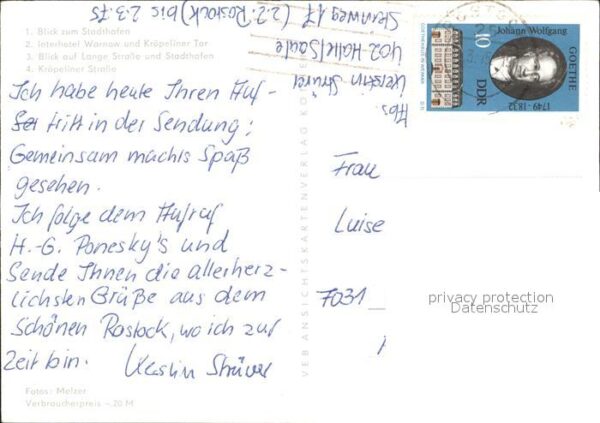 1. Blick zum Stadthafen
2. Interhotel Warnow und Kröpeliner Tor
3. Blick auf Lange Straße und Stadthafen
4. Kröpeliner Straße
Ich habe heute Ihren Auf-
tritt in der Sendung:
Gemeinsam machts Spaß
gesehen.
Ich folge dem Aufruf
H.-G. Ponesky's und
Sende Ihnen die allerherz-
lichsten Grüße aus dem
Schönen Rostock, wo ich zur
Zeit bin. Kerstin Strüver
Fotos: Melzer
Verbraucherpreis -,20 M
VEB ANSICHTSKARTENVERLAG
Abs.
Kerstin Strüver
402 Halle/Saale
17 (2.2. Rostock) bis 2.3.75
Johann Wolfgang
GOETHE
1749-1832
DDR
10
Frau
Luise
7031
privacy protection
Datenschutz